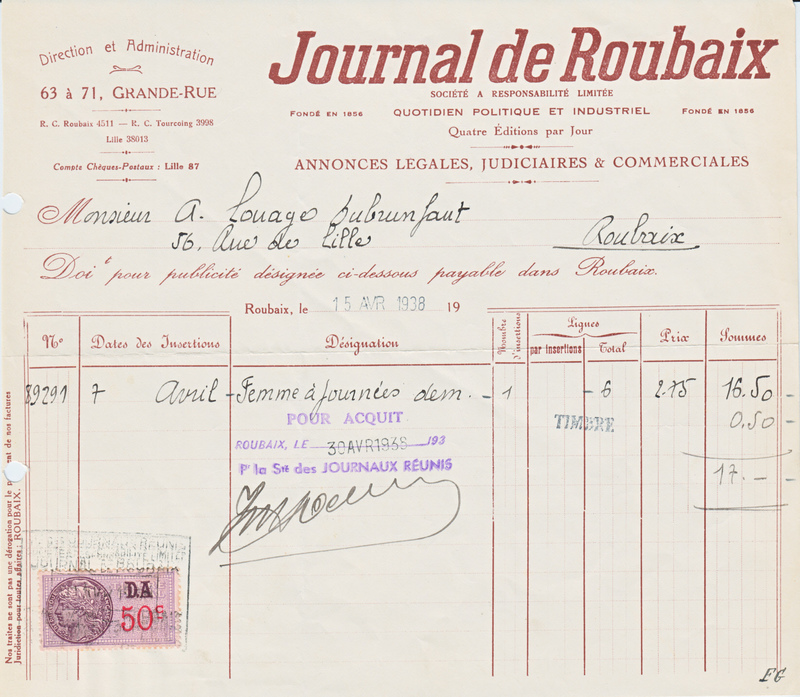 Direction et Administration
63 à 71, GRANDE-RUE
R. C. Roubaix 4511 — R. C. Tourcoing 3998
Lille 38013
Compte Chèques-Postaux : Lille 87
Journal de Roubaix
SOCIÉTÉ A RESPONSABILITÉ LIMITÉE
FONDÉ EN 1856 QUOTIDIEN POLITIQUE ET INDUSTRIEL FONDÉ EN 1856
Quatre Éditions par Jour
ANNONCES LÉGALES, JUDICIAIRES & COMMERCIALES
Monsieur A. Louage Dubrunfaut
56, Rue de Lille Roubaix
Doit pour publicité désignée ci-dessous payable dans Roubaix.
Roubaix, le 15 AVR 1938 19
N° Dates des Insertions Désignation Nombre d'insertions Lignes par insertions Total Prix Sommes
89291 7 Avril - Femme à journées dem. - 1 - 6 2.75 16.50 -
POUR ACQUIT
TIMBRE 0,50 -
ROUBAIX, LE 30 AVR 1938 193
Pr la Sté des JOURNAUX RÉUNIS
17. - -
JOURNAL DE ROUBAIX
DA
50c
Nos traites ne sont pas une dérogation pour le de nos factures
Juridiction pour toutes affaires : ROUBAIX.
FG